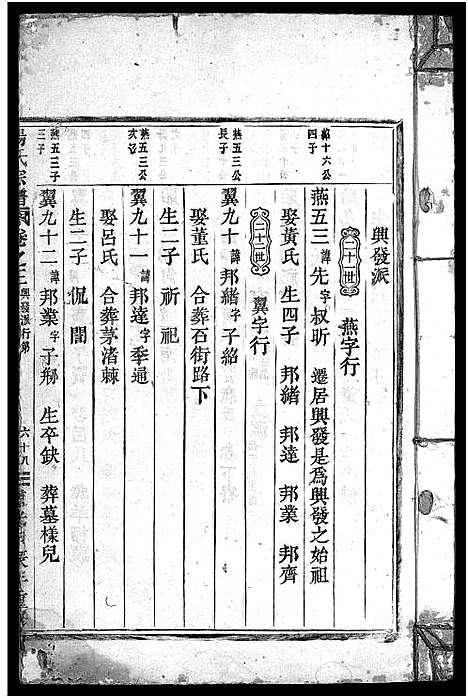 興發派
二十一世 燕字行
鎔十六公四子
燕五三 諱先 字叔昕 遷居興發是爲興發之始祖
娶黃氏 生四子 邦緒 邦達 邦業 邦齊
二十二世 翼字行
燕五三公長子
翼九十 諱邦緒 字子紹
娶董氏 合葬石街路下
生二子 祈 祀
燕五三公次子
翼九十一 諱邦達 字季通
娶呂氏 合葬茅渚棘
生二子 侃 誾
燕五三公三子
翼九十二 諱邦業 字子 生卒缺 葬墓樣兒
楊氏宗譜 卷之三 興發派行第 六十八